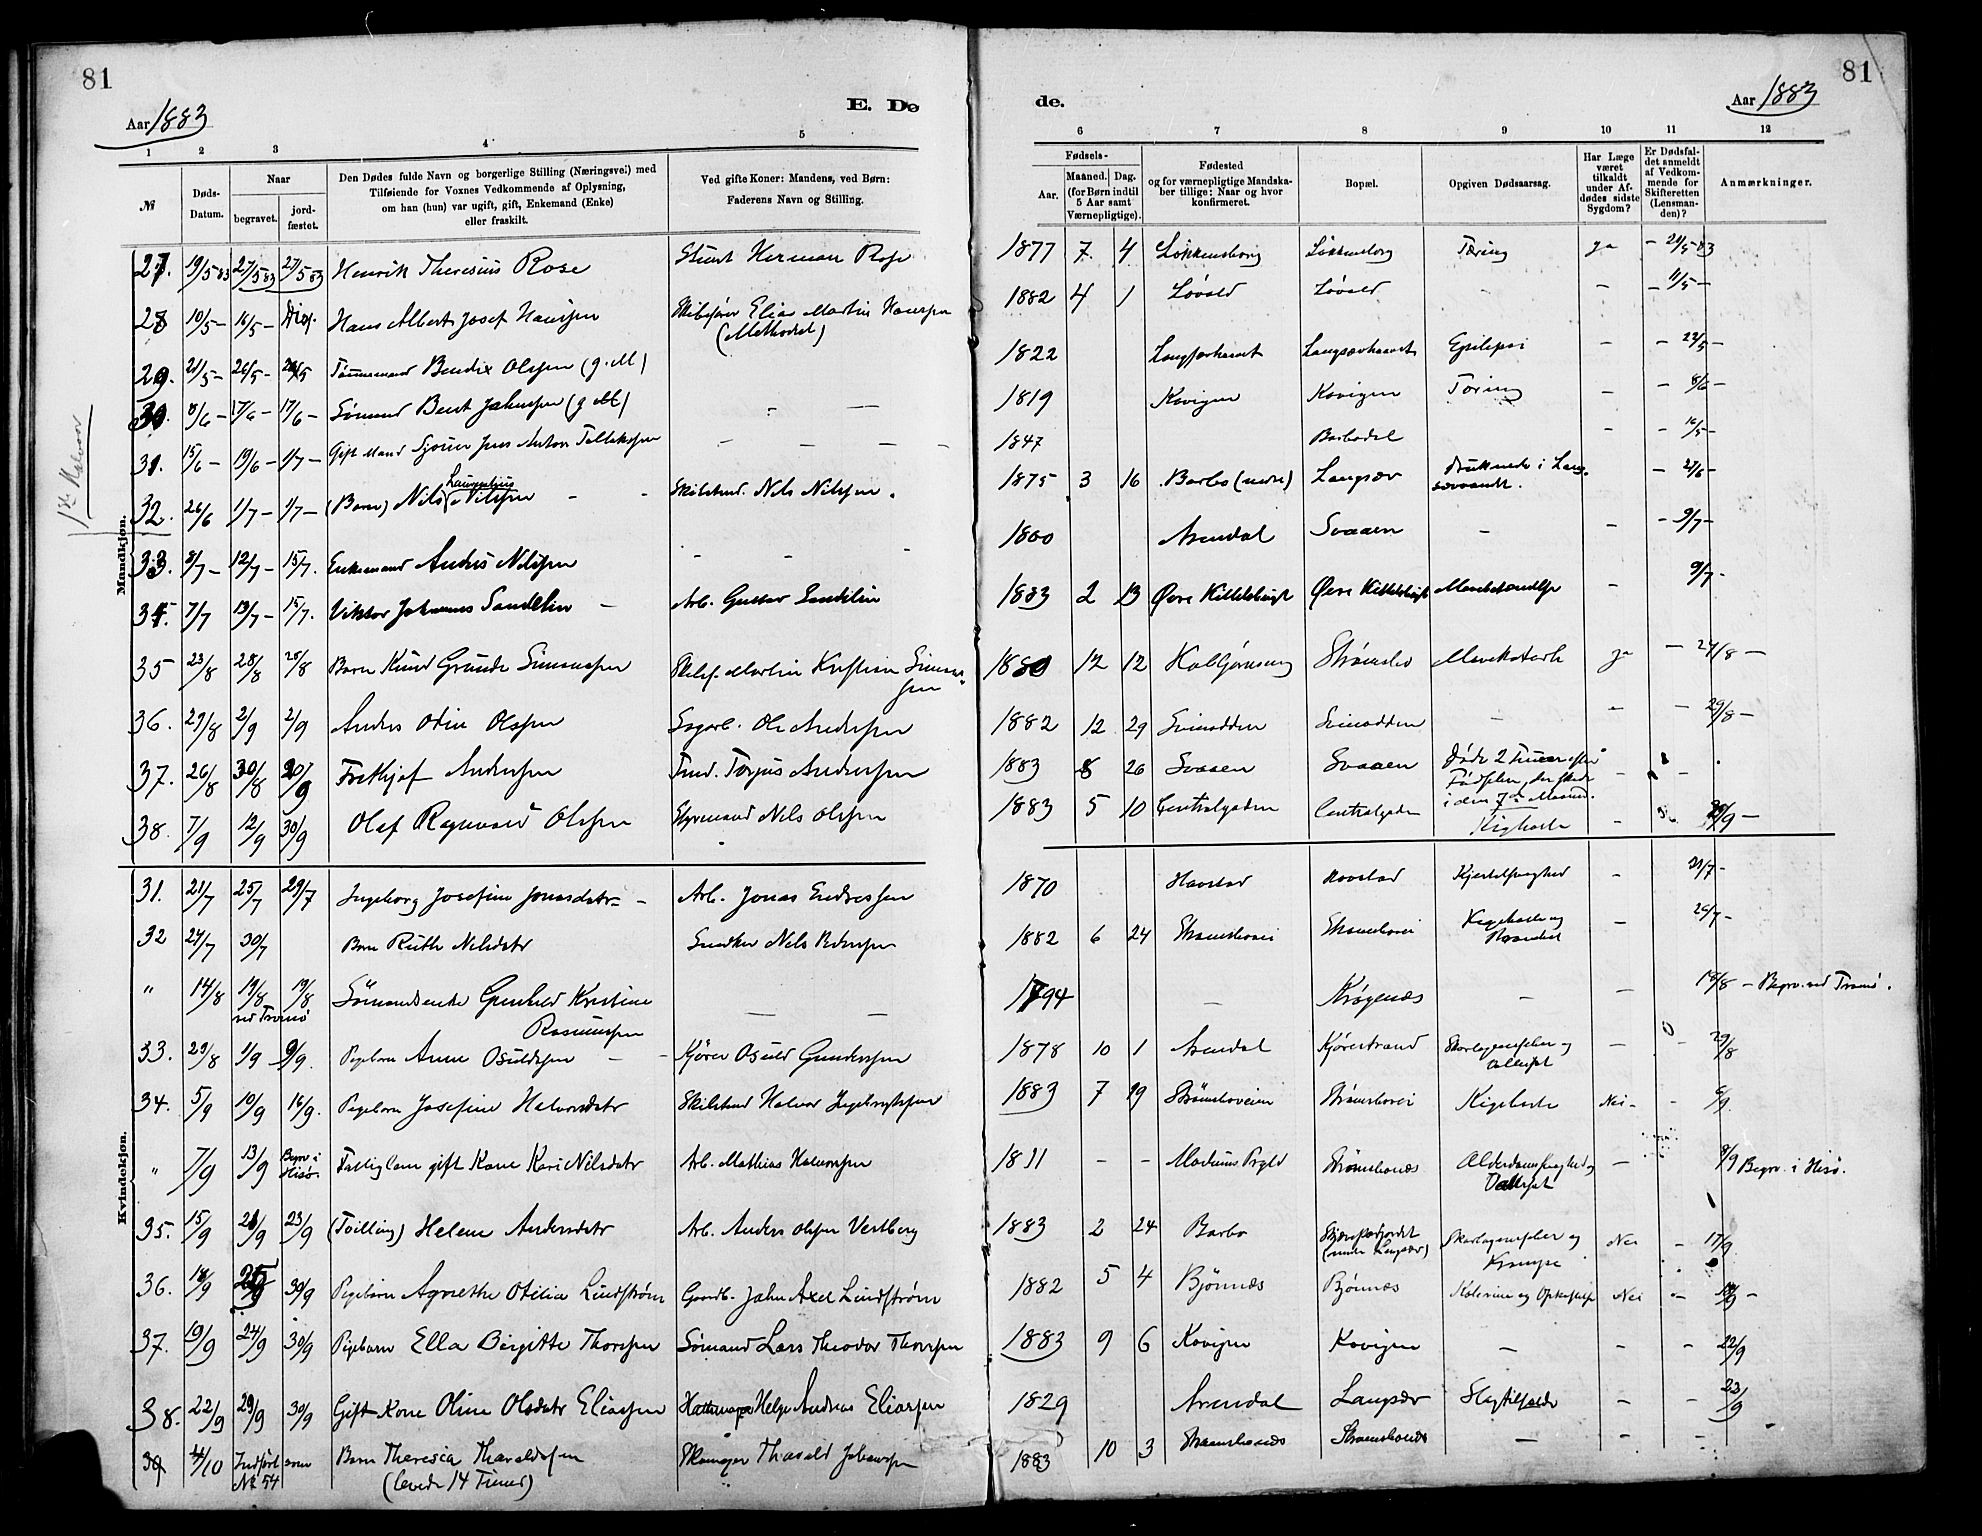 81
81
Aar 1883
E. Dø
de.
Aar 1883
1 2 3 4 5
6 7 8 9 10 11 12
№
Døds-Datum.
Naar
begravet.
jordfæstet.
Den Dødes fulde Navn og borgerlige Stilling (Næringsvei) med
Tilføiende for Voxnes Vedkommende af Oplysning,
om han (hun) var ugift, gift, Enkemand (Enke)
eller fraskilt.
Ved gifte Koner: Mandens, ved Børn:
Faderens Navn og Stilling.
Fødsels-
Aar.
Maaned. Dag.
(for Børn indtil
5 Aar samt
Værnepligtige).
Fødested
og for værnepligtige Mandskaber
tillige: Naar og hvor
konfirmeret.
Bopæl.
Opgiven Dødsaarsag.
Har Læge
været
tilkaldt
under Afdødes
sidste
Sygdom?
Er Dødsfaldet
anmeldt
af Vedkommende
for
Skifteretten
(Lensmanden)?
Anmærkninger.
Mandkjøn.
27. 19/5 83 27/5 83 27/5 83 Henrik Theresius Rose Herman Rose 1877 7 4 Løkkensborg Løkkensborg Tæring ja - 21/5-83
28 10/5 - 16/5 - Hans Albert Josef Hansen Skibsfører Elias Martin Hansen 1882 4 1 Løvold Løvold - - - 11/5 -
29. 21/5 - 26/5 - Tømmermand Bendix Olsen (g. M) 1822 Langsæehavet Epilepsi - - 22/5 -
30. 8/6 - 17/6 - 17/6 - Sømand Bent Jahnsen (g M) - - 1819 Kovigen Kovigen Tæring - - 8/6 -
31. 15/6 - 19/6 - 1/7 - Gift Mand Jens Anton Tellefsen - - - - 1847 Barbodal - - 16/5 -
32. 26/6 1/7 - 1/7 - (Barn) Nils Laurentius Nilssen - - Skibstmd. Nils Nilssen. 1875 3 16 Barbo (nedre) Langsæv druknede i - 27/6 -
33. 8/7 - 12/7 - 15/7. Enkemand Anders Nilssen - - - 1800 Arendal Svaaen - - - 9/7 -
34. 7/7 13/7 - 15/7. Viktor Johannes Sandelin - Arb. Gustav Sandelin 1883 2 13 Øvre Kittelsbugt Øvre Kittelsbugt - 9/7 -
35 23/8 28/8 28/8 Barn Knud Grunde Simonsen Skibsf. Martin Kristian Simonsen 1880 12 12 Strømsbo ja - 24/8 -
36. 29/8 2/9 2/9 Anders Odin Olssen Ole Anderssen 1882 12 29 Svinodden Svinodden - - - 29/8 -
37. 26/8 30/8 30/9 Frethjof Anderssen Torjus Anderssen 1883 8 26 Svaaen Svaaen Døde 2 Timer efter Fødselen, der skede i den 7de Maaned. - -
38. 7/9 12/9 30/9 Olaf Ragnvald Olssen Styrmand Nils Olssen 1883 5 10 Centralgaden Centralgaden Kighoste - 30/9 -
Kvindekjøn.
31. 21/7 25/7 29/7 Ingeborg Josefine Jonasdatr - Arb. Jonas Endressen 1870 Havstad Havstad Kjertelsvaghed - 21/7 -
32 24/7 30/7 Barn Ruth Nilsdatr Snedker Nils Pederssen 1882 6 24 Strømsbovei Strømsbovei Kighoste og - 26/7 -
" 14/8 19/8 ved Tromø 19/8 Sømandsenke Gunhild Kristine Rasmussen - - 1794 - Krøgenæs - - 18/8 - Begrv. ved Tromø.
33. 29/8 1/9 9/9. Pigebarn Anne Osuldsen - - Kjører Osuld Gunderssen 1878 10 1 Arendal Kjørestrand Skarlagensfeber og - - 29/8
34. 5/9 10/9 16/9. Pigebarn Josefine Halvorsdatr Skibstmd Halvor Ingebregtssen 1883 7 19 Strømsboveien Strømsbovei Kighoste Nei - - 6/9.
" 7/9 13/9 Begrv i Hisø. Fattiglem gift Kone Kari Nilsdatr Arb. Mathias Halvorssen 1811 - - Strømsbonæs Alderdomssvaghed og - 8/9 Begrv. i Hisø.
35. 15/9 21/9 23/9 (Tvilling) Helene Andersdatr Arb. Anders Olssen Vestberg 1883 2 24 Barbo (nedre Langsæv) Skarlagensfeber og Krampe Nei - 17/9
36. 18/9 25/9 30/9 Pigebarn Agnethe Otilia Lindstrøm Gaardb. Jahn Axel Lindstrøm 1882 5 4 Bjønnæs Bjønnæs Kolerine og Nei -
37. 19/9 24/9 30/9 Pigebarn Ella Birgitte Thorssen Sømand Lars Theodor Thorssen 1883 9 6 Kovigen Kovigen - - - 22/9
38. 22/9 29/9 30/9 Gift Kone Oline Olsdatr Eliassen Helge Andreas Eliassen 1829 Arendal Langsæv Slagtilfælde - - 22/9
39 4/10 Indført som № 54 Barn Theresia Tharaldsen (levede 14 Timer) Skomager Tharald Johanssen 1883 10 3 Strømsbonæs Strømsbonæs - - -